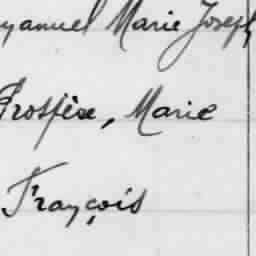 yanuel Marie Joseph
Prosper, Marie
François